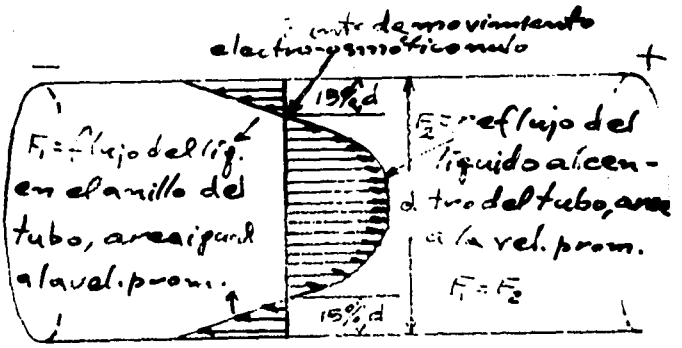 de movimiento
electro-osmótico nulo
−
+
15% d
F₁=flujo del líq.
en el anillo del
tubo, area igual
a la vel. prom.
F₂=reflujo del
líquido al cen-
d
tro del tubo, area
a la vel. prom.
F₁ = F₂
15% d